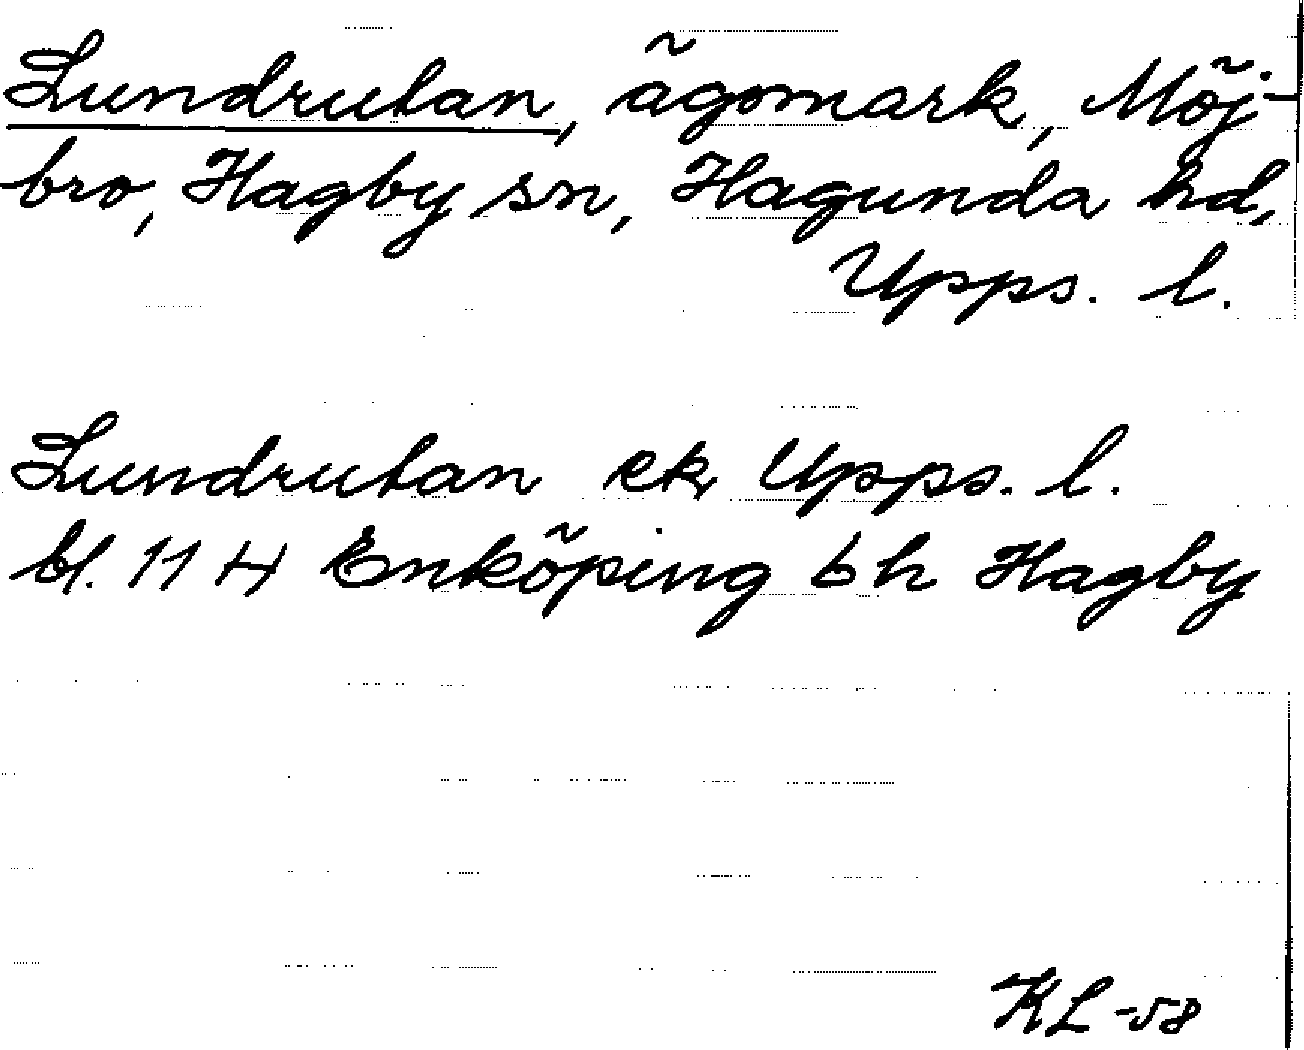 Lundrutan, ägomark, Möj-
bro, Hagby sn, Hagunda hd,
Upps. l.
Lundrutan ek Upps. l.
bl. 11 H Enköping b h Hagby
KL -58